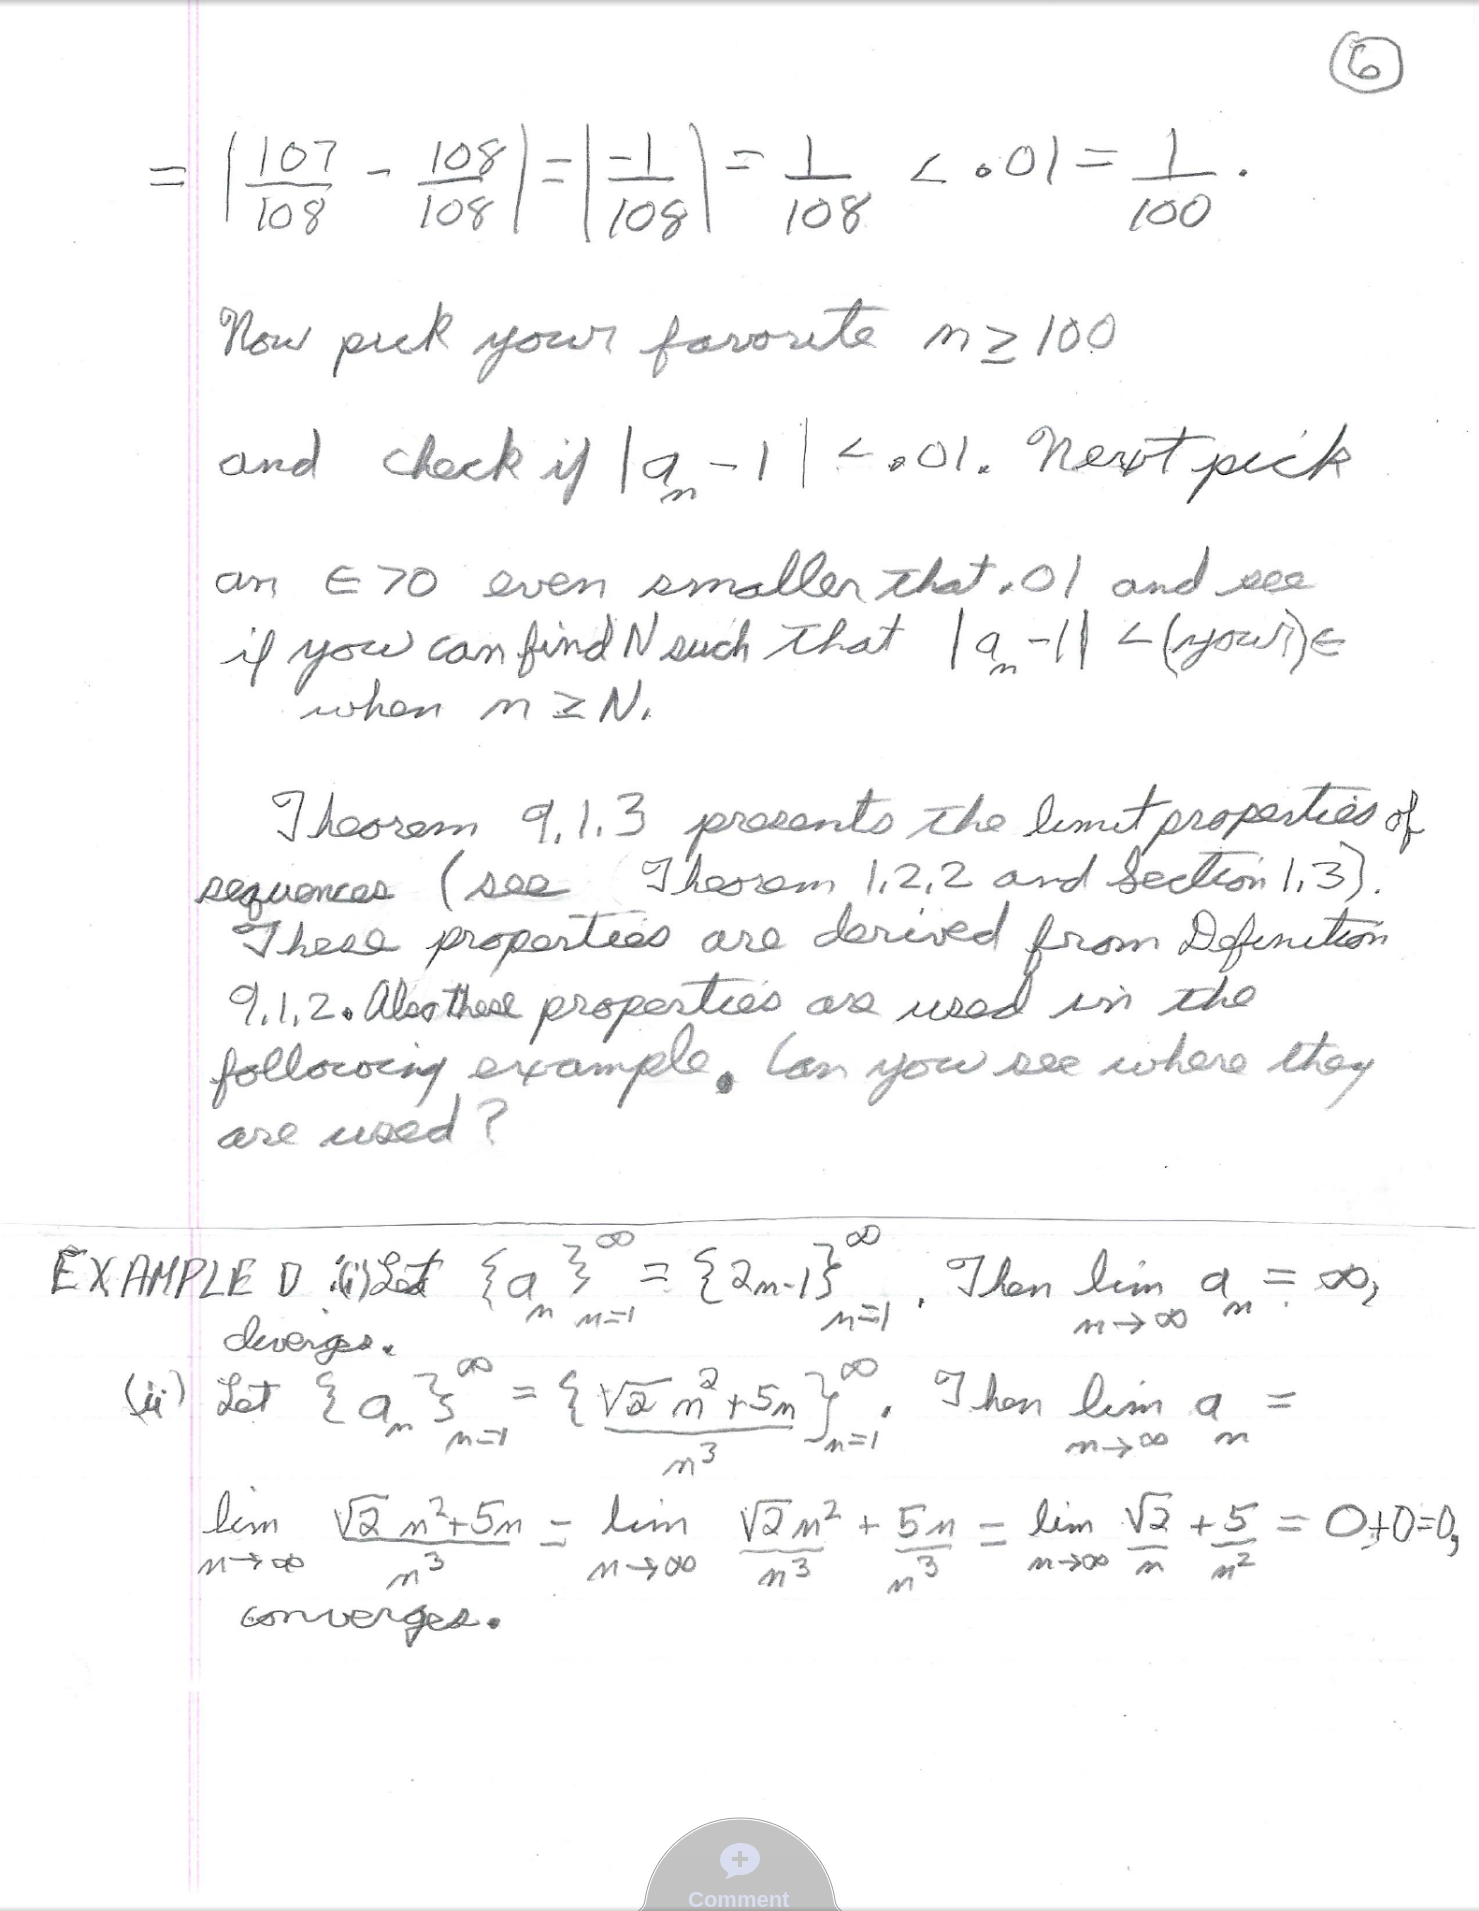 6
= |107/108 - 108/108| = |-1/108| = 1/108 < .01 = 1/100.
Now pick your favorite n ≥ 100
and check if |a_n - 1| < .01. Next pick
an ∈ > 0 even smaller that .01 and see
if you can find N such that |a_n - 1| < (your) ∈
when n ≥ N.
Theorem 9.1.3 presents the limit properties of
sequences (see Theorem 1.2.2 and Section 1.3).
These properties are derived from Definition
9.1.2. Also these properties are used in the
following example. Can you see where they
are used?
EXAMPLE D (i) Let {a_n}_{n=1}^∞ = {2n-1}_{n=1}^∞. Then lim_{n→∞} a_n = ∞,
diverges.
(ii) Let {a_n}_{n=1}^∞ = {(√2 n^2 + 5n)/n^3}_{n=1}^∞. Then lim_{n→∞} a_n =
lim_{n→∞} (√2 n^2 + 5n)/n^3 = lim_{n→∞} √2 n^2/n^3 + 5n/n^3 = lim_{n→∞} √2/n + 5/n^2 = 0+0=0,
converges.
Comment